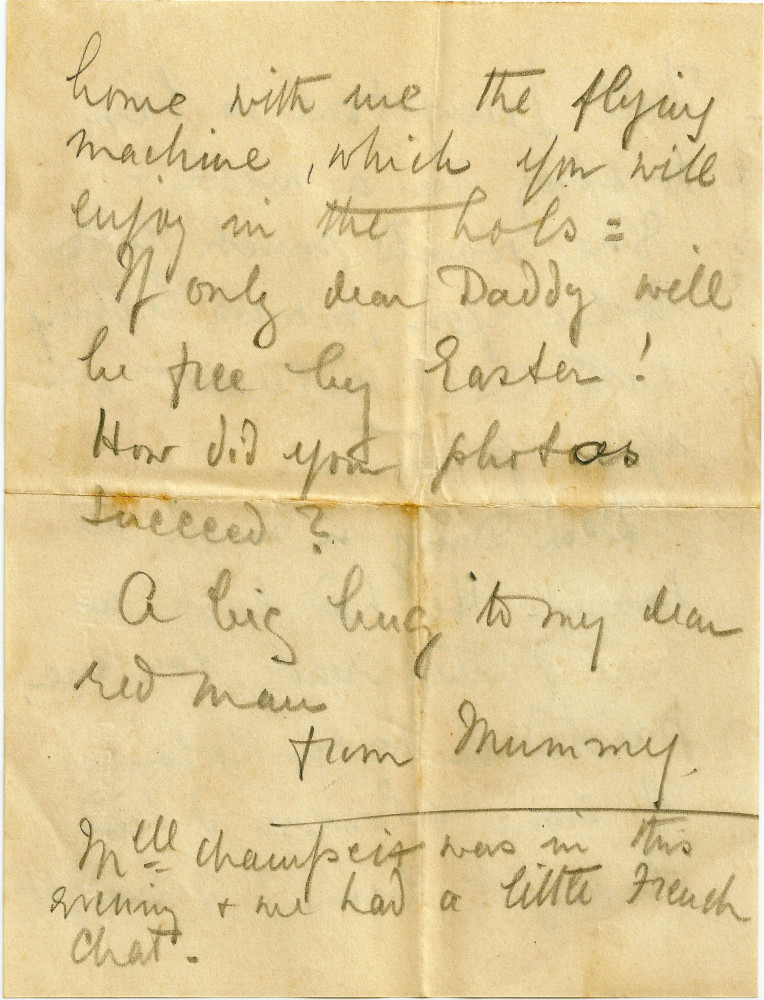 home with me the flying
machine, which you will
enjoy in the hols =
If only dear Daddy will
be free by Easter!
How did your photos
succeed?
A big hug to my dear
red man
from Mummy.
Mlle was in this
evening + we had a little French
chat.